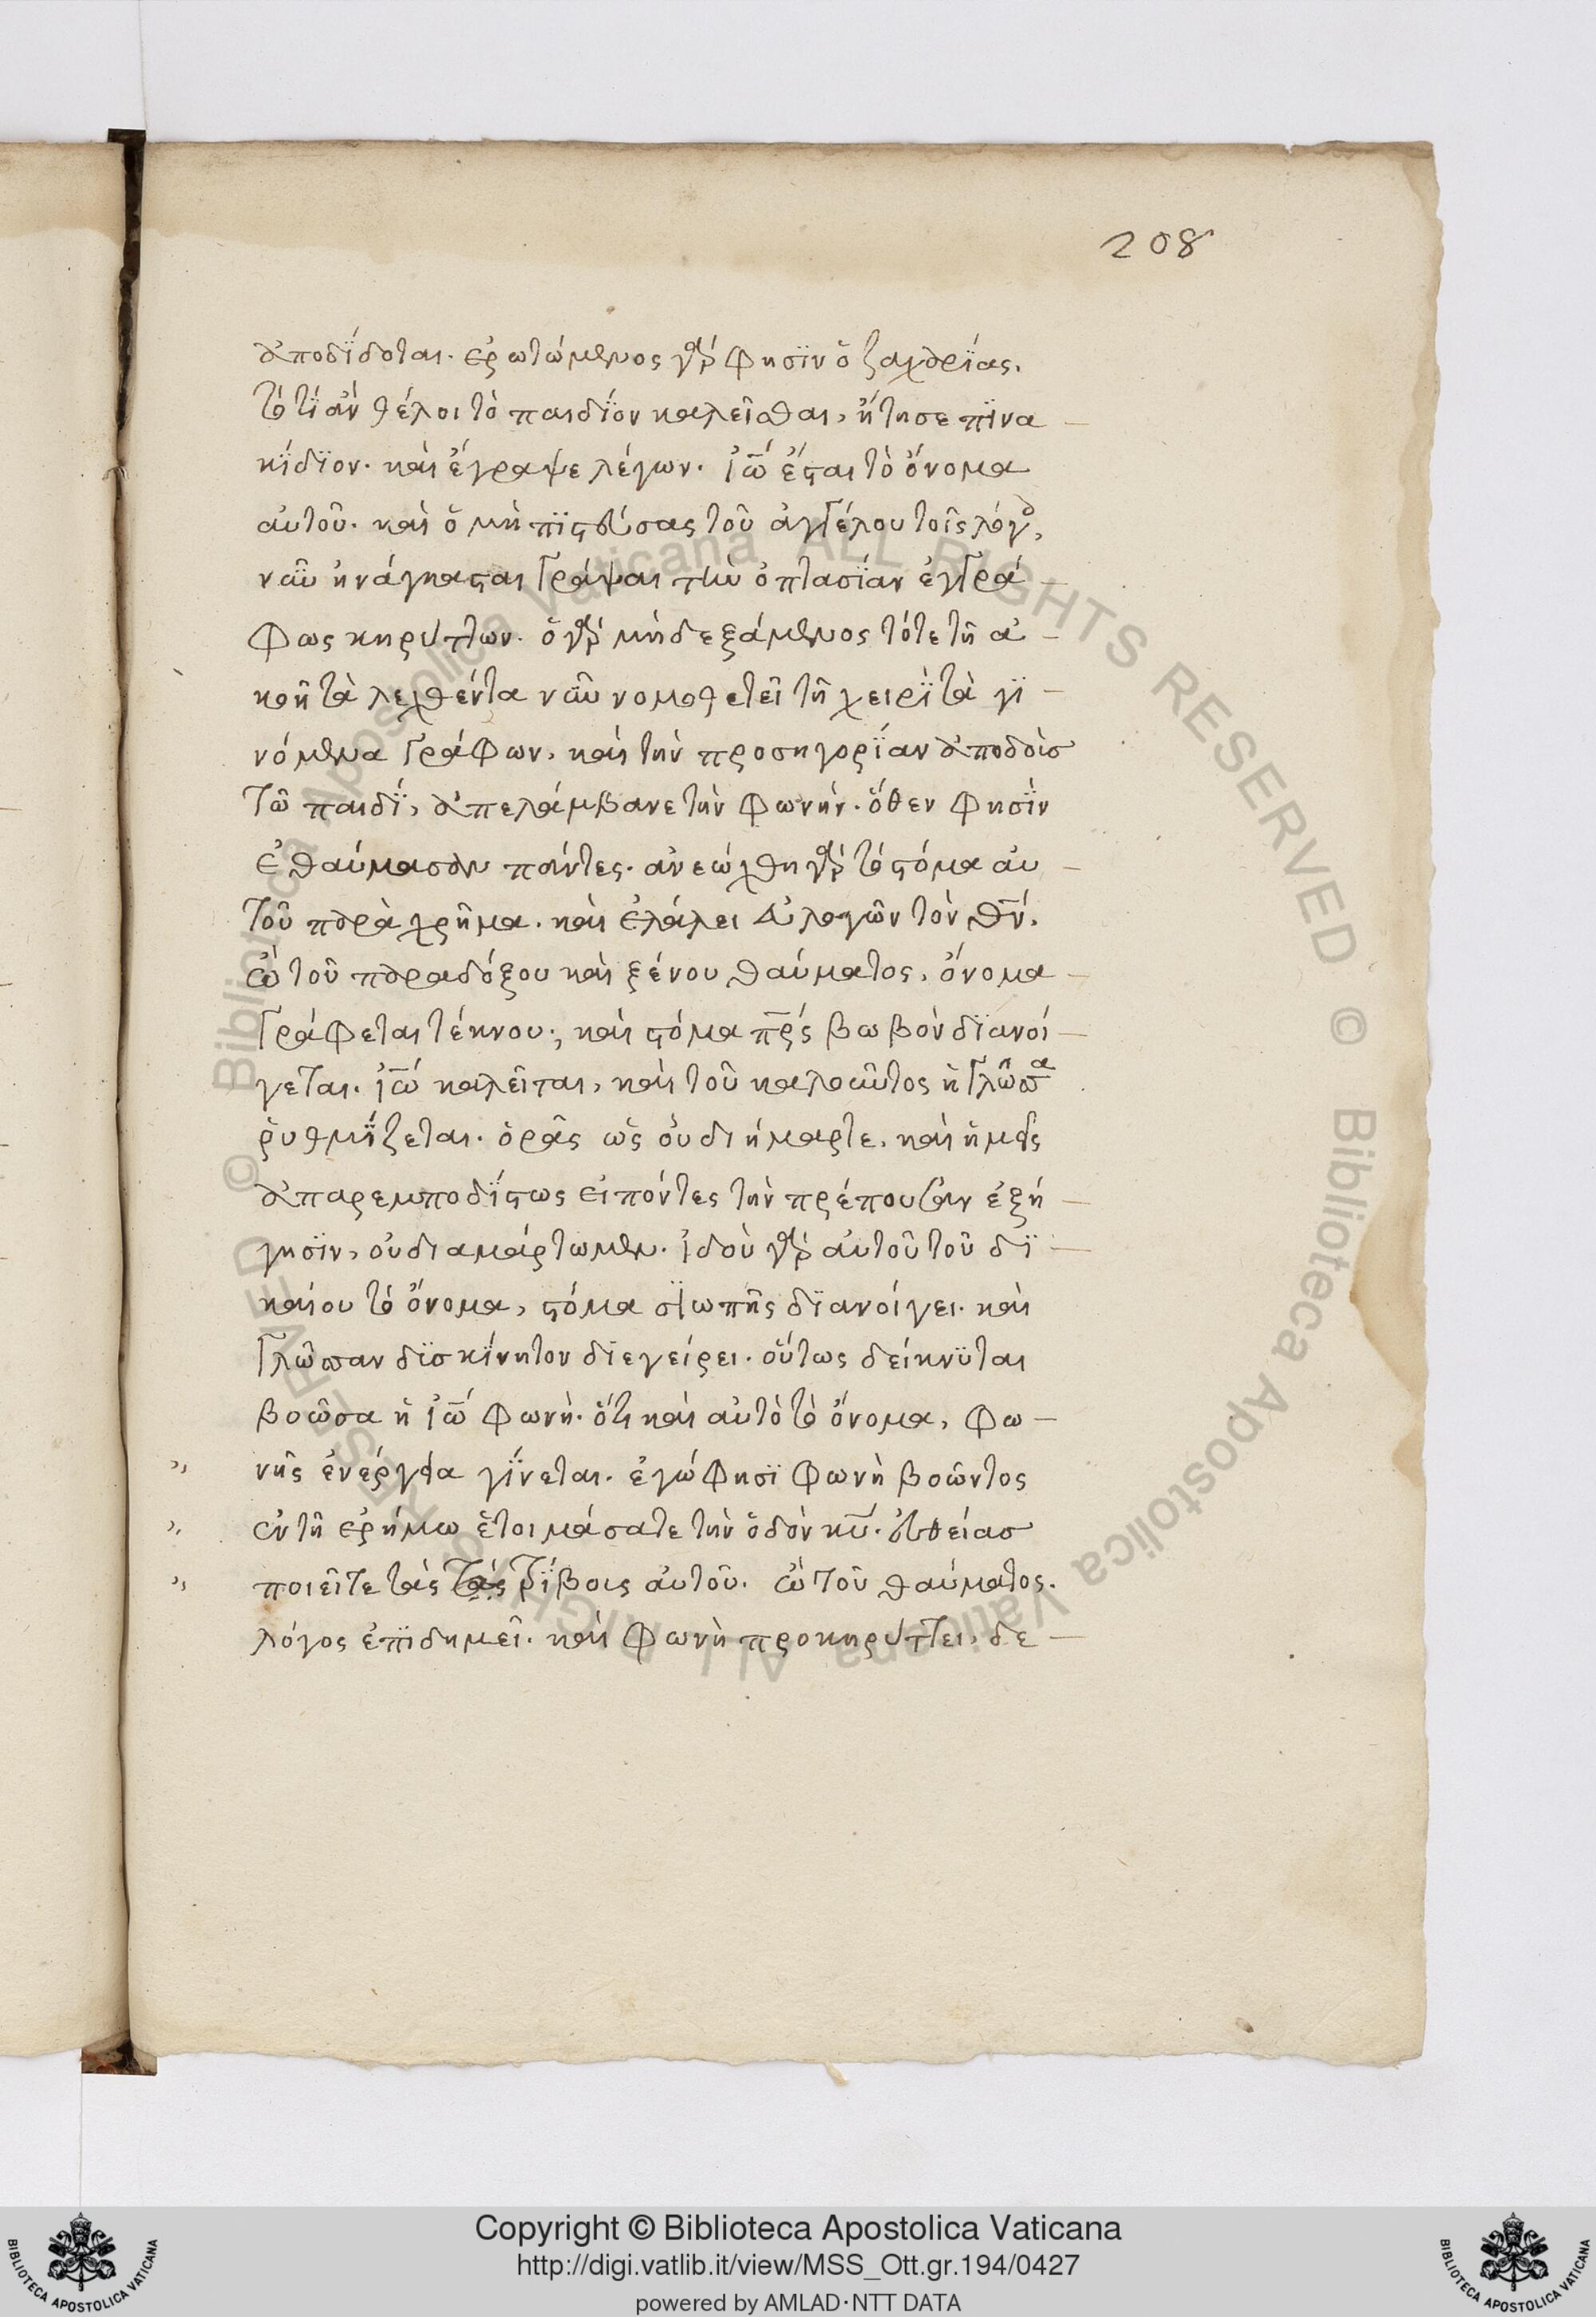 208
ἀποδίδοται. ἐρωτώμενος γὰρ φησϊν ὁ ζαχαρίας.
τὸ τί ἂν θέλοι τὸ παιδίον καλεῖσθαι, ἤτησε πϊνα
κίδϊον. καὶ ἔγραψε λέγων. ἰω̅ ἔσται τὸ ὄνομα
αὐτοῦ. καὶ ὁ μὴ πϊστεύσας τοῦ ἀγγέλου τοῖς λόγοις,
νῦν ἠνάγκασται γράψαι τὴν ὀπτασίαν ἐγγρά
φως κηρύττων. ὁ γὰρ μὴ δεξάμενος τότε τῆ ἀ
κοῆ τὰ λεχθέντα νῦν νομοθετεῖ τῆ χειρὶ τὰ γϊ
νόμενα γράφων. καὶ τὴν προσηγορίαν ἀποδοὺσ
τῶ παιδὶ, ἀπελάμβανε τὴν φωνήν. ὅθεν φησὶν
ἐθαύμασαν πάντες. ἀνεώχθη γὰρ τὸ στόμα αὐ
τοῦ παραχρῆμα. καὶ ἐλάλει εὐλογῶν τὸν θν̅.
ὢ τοῦ παραδόξου καὶ ξένου θαύματος. ὄνομα
γράφεται τέκνου, καὶ στόμα πρς̅ βωβὸν διανοί
γεται. ἰω̅ καλεῖται, καὶ τοῦ καλοῦντος ἡ γλῶσσα
ῥυθμίζεται. ὁρᾶς ὡς οὐ διήμαρτε. καὶ ἡμεῖς
ἀπαρεμποδίστως εἰπόντες τὴν πρέπουσαν ἐξή
γησϊν, οὐ διαμάρτωμεν. ἰδοὺ γὰρ αὐτοῦ τοῦ δϊ
καίου τὸ ὄνομα, στόμα σϊωπῆς δϊανοίγει. καὶ
γλῶσσαν δϊσκίνητον διεγείρει. οὕτως δείκνϋται
βοῶσα ἡ ἰω̅ φωνή. ὅτι καὶ αὐτὸ τὸ ὄνομα, φω
νῆς ἐνέργεια γίνεται. ἐγώ φησϊ φωνὴ βοῶντος
ἐν τῆ ἐρήμω ἑτοιμάσατε τὴν ὁδὸν κυ̅. εὐθείασ
ποιεῖτε τὰς τὰς τρίβους αὐτοῦ. ὢ τοῦ θαύματος.
λόγος ἐπϊδημεῖ. καὶ φωνὴ προκηρύττει, δε
Copyright © Biblioteca Apostolica Vaticana
http://digi.vatlib.it/view/MSS_Ott.gr.194/0427
powered by AMLAD·NTT DATA